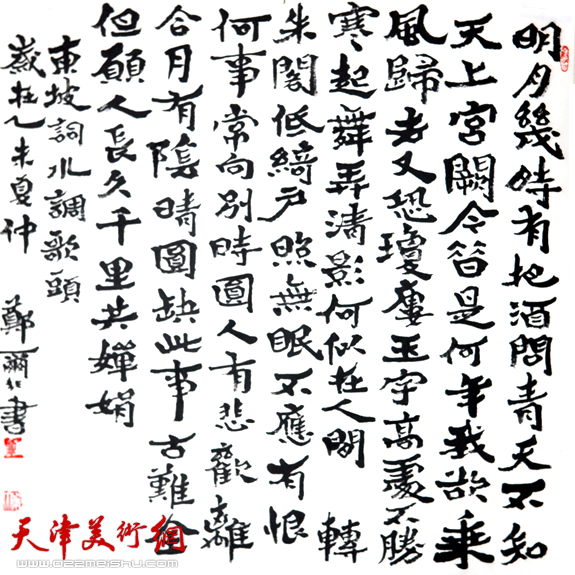 明月幾時有把酒問青天不知
天上宮闕今昔是何年我欲乘
風歸去又恐瓊廔玉宇高處不勝
寒起舞弄清影何似在人間 轉
朱閣低綺户照無眠不應有恨
何事常向別時圓人有悲歡離
合月有陰晴圓缺此事古難全
但願人長久千里共嬋娟
東坡詞水調歌頭
歲在乙未夏仲 鄭爾非書
天津美術網
www.022meishu.com